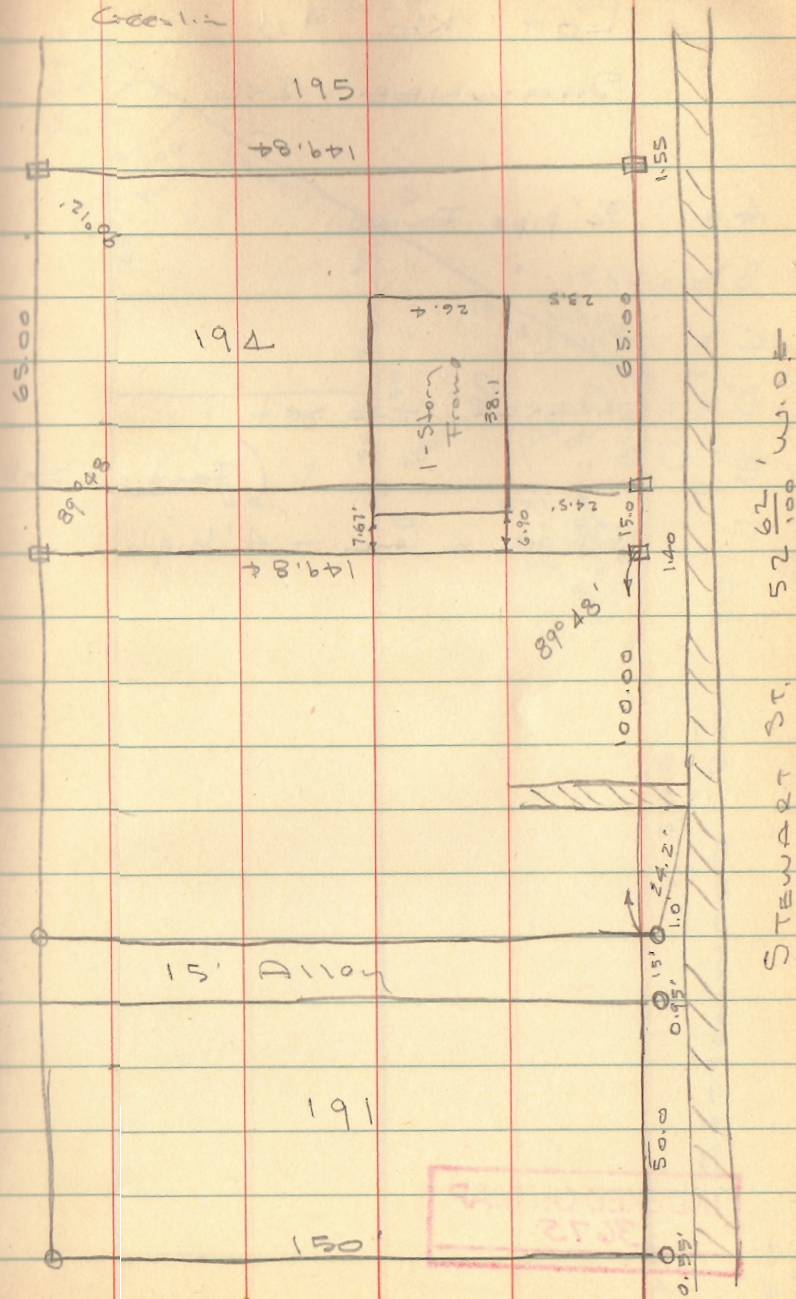 195
149.84
1.55
90°12'
65.00
194
26.4
23.5
65.00
1-Story
Frame
38.1
89°48
7.67'
24.5'
6.90
15.0
1.40
149.84
89°48'
100.00
STEWART ST. 52 62/100' W.O.F
24.2'
1.0'
15' Alley
15'
0.95'
191
50.0
150'
0.55'